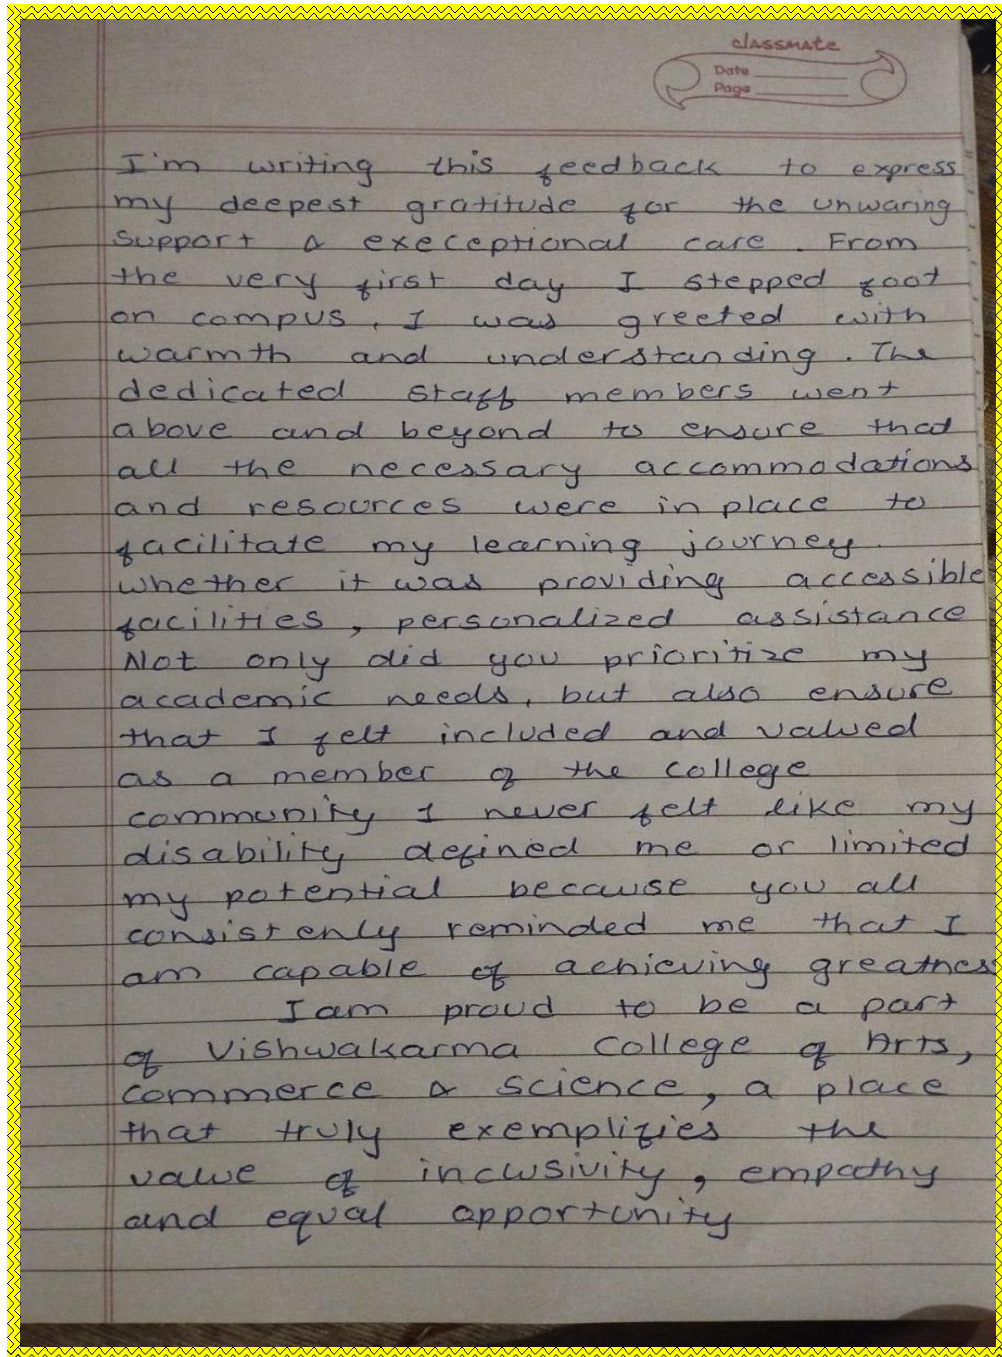 classmate
Date
Page
I'm writing this feedback to express
my deepest gratitude for the unwaring
support & execeptional care. From
the very first day I stepped foot
on campus, I was greeted with
warmth and understanding. The
dedicated staff members went
above and beyond to ensure that
all the necessary accommodations
and resources were in place to
facilitate my learning journey.
whether it was providing accessible
facilities, personalized assistance
Not only did you prioritize my
academic needs, but also ensure
that I felt included and valued
as a member of the college
community I never felt like my
disability defined me or limited
my potential because you all
consistenly reminded me that I
am capable of achieving greatnes
I am proud to be a part
of Vishwakarma College of Arts,
commerce & science, a place
that truly exemplifies the
value of inclusivity, empathy
and equal opportunity